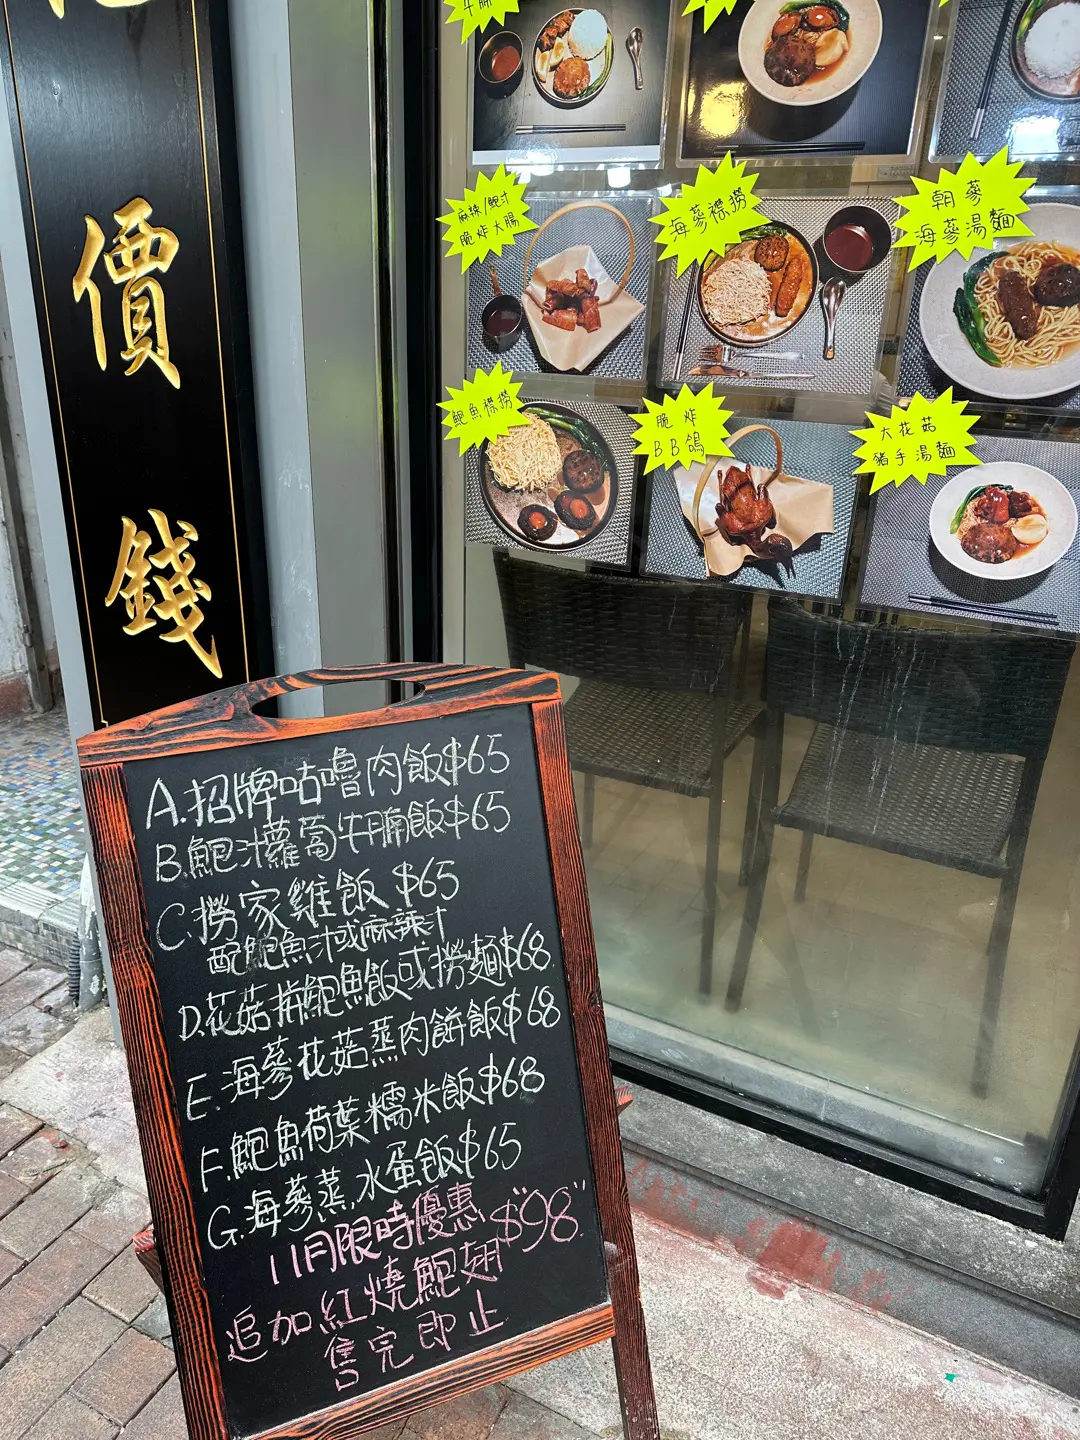 價
錢
牛腩
麻辣/鮑汁
脆炸大腸
海蔘襟撈
朝蔘
海蔘湯麵
鮑魚襟撈
脆炸
BB鴿
大花菇
豬手湯麵
A.招牌咕嚕肉飯$65
B.鮑汁蘿蔔牛腩飯$65
C.撈家雞飯 $65
配鮑魚汁或麻辣汁
D.花菇拼鮑魚飯或撈麵$68
E.海蔘花菇蒸肉餅飯$68
F.鮑魚荷葉糯米飯$68
G.海蔘蒸水蛋飯$65
11月限時優惠
追加紅燒鮑翅"$98"
售完即止